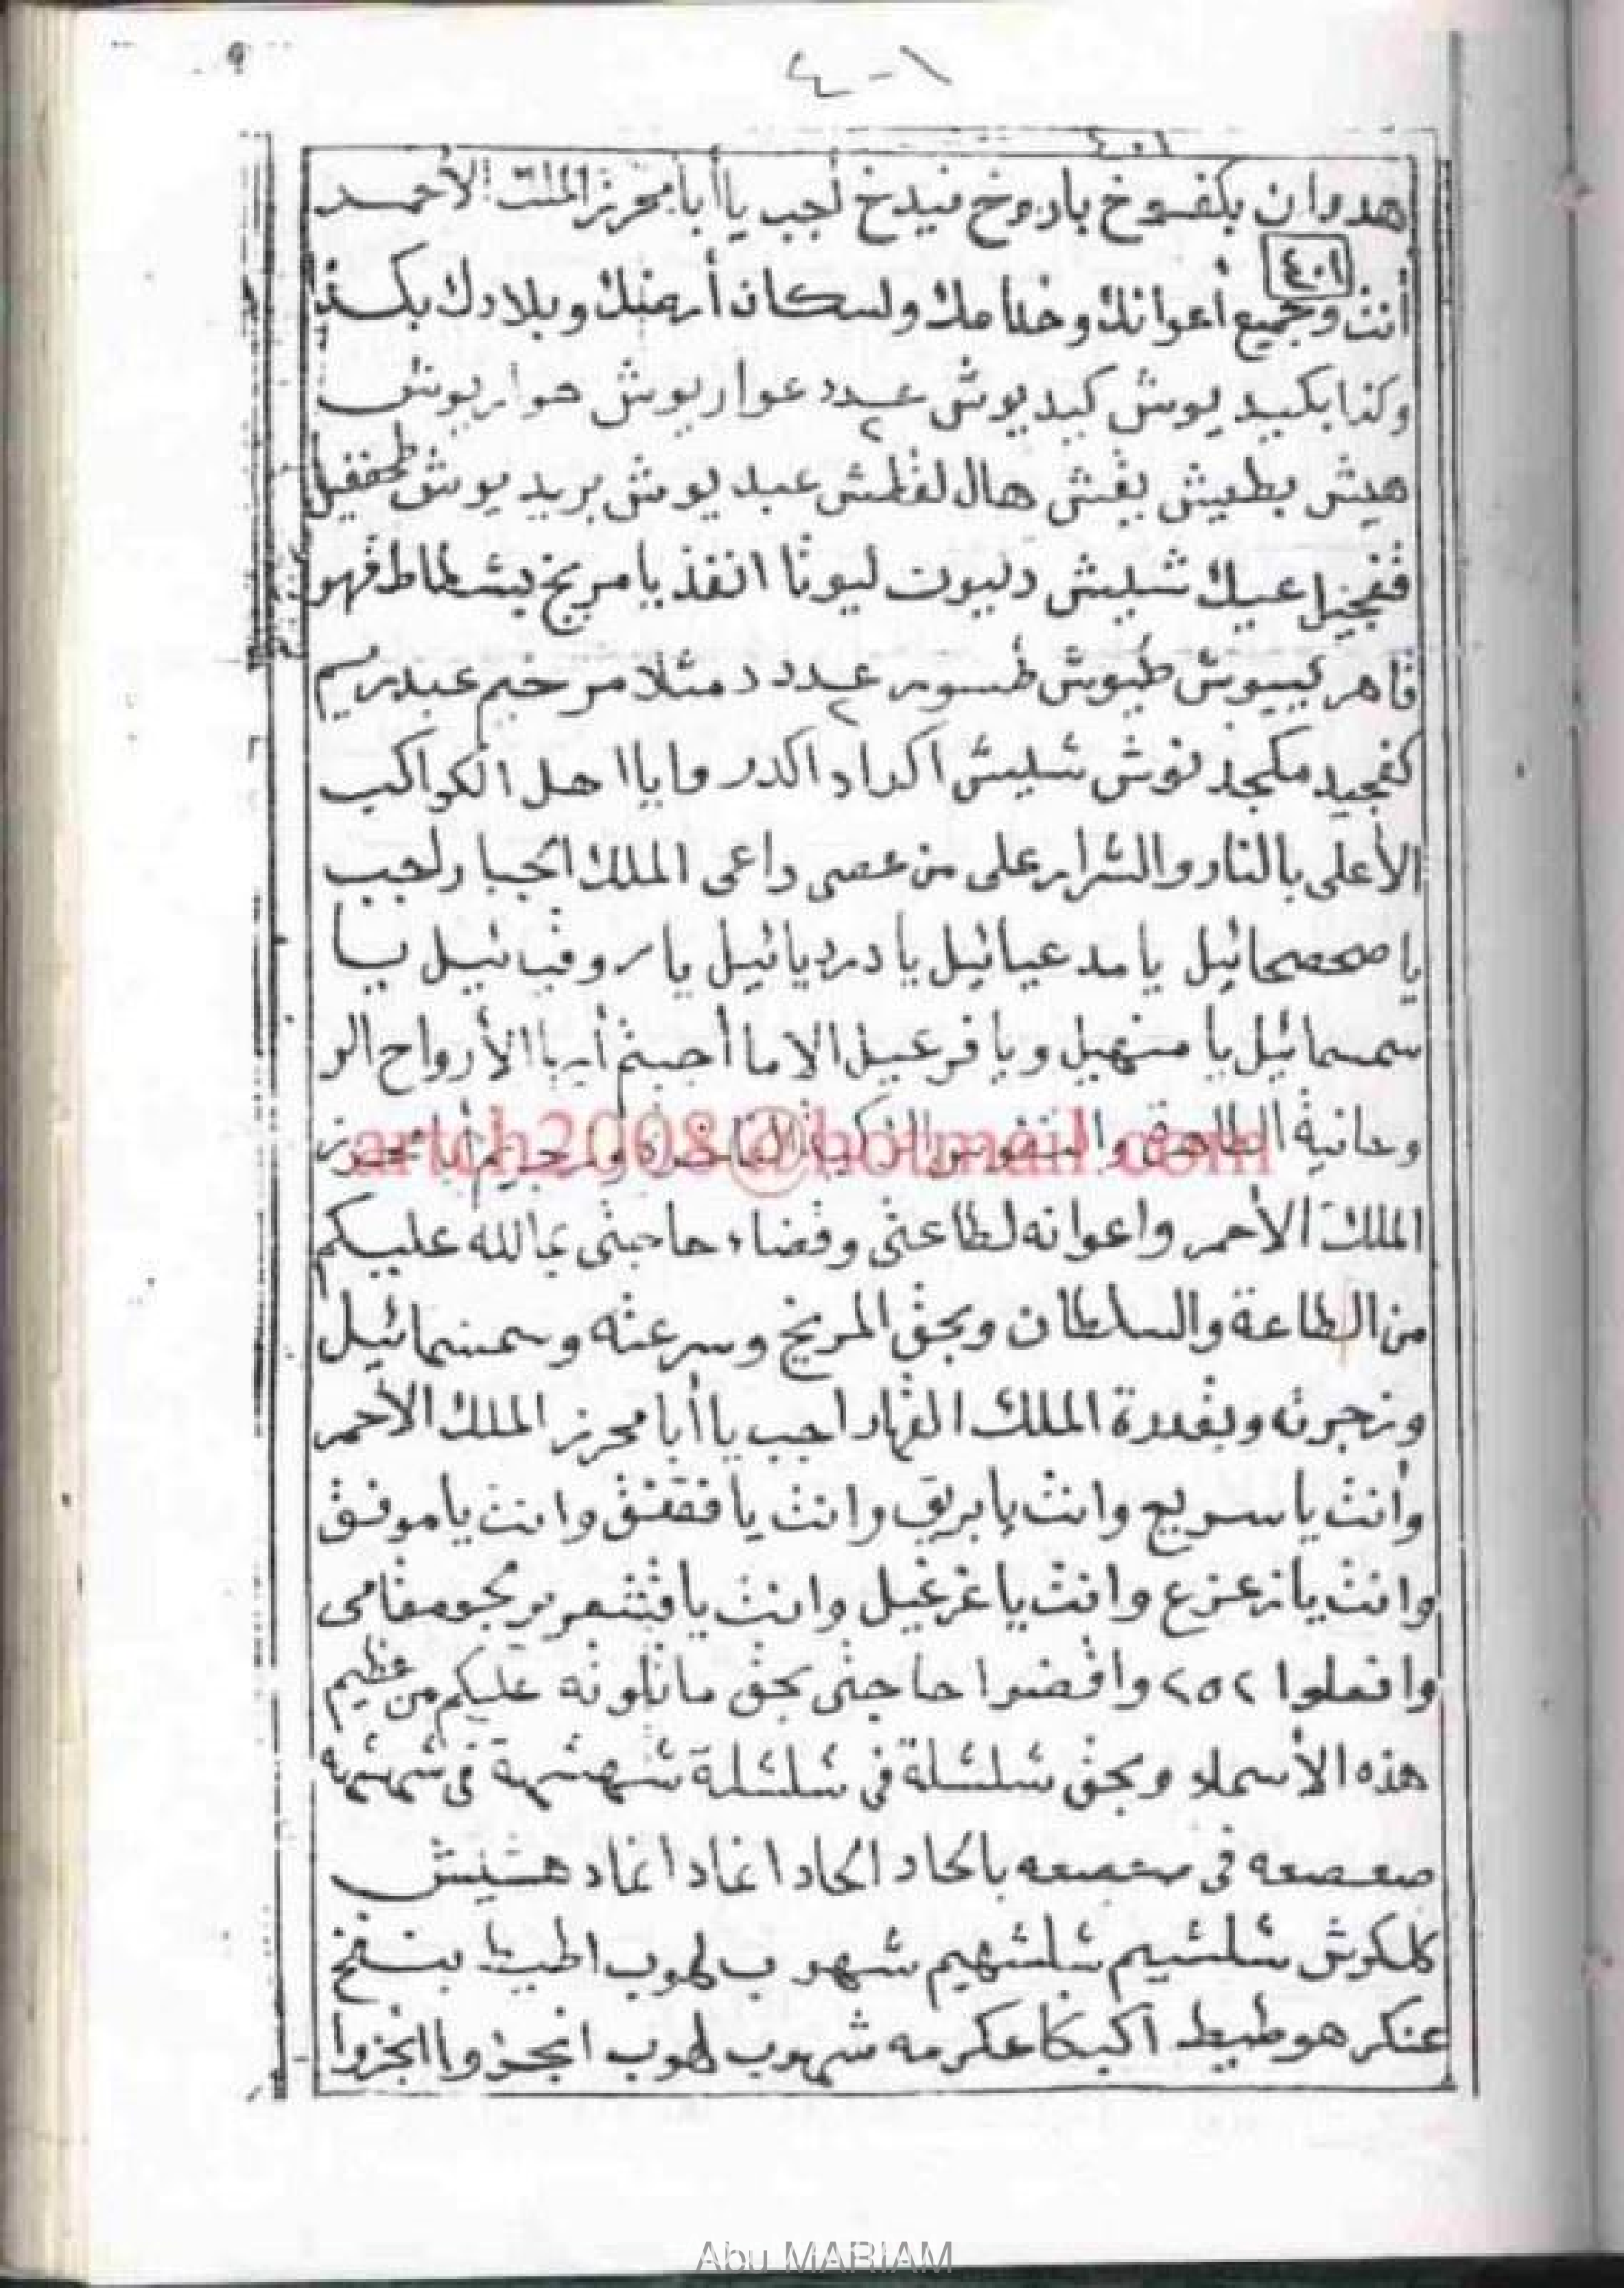 ٤٠١
٤٠١
هدوان بكفوخ باروخ فيدخ أجب يا أبا محرز الملك الأحمد
٤٠١
أنت وجميع أعوانك وخدامك ولسكان أرضك وبلادك بكذ
وكذا بكيد يوش كيد يوش عدد ٢ عوار يوش حوار يوش
هيش بطيش يفش هال لفلمش عبد يوش بريد يوش
ففجيل عيك شليش دليوت ليوثا انفذ يا مريخ بشلماط فهو
قاهر كييوش طيوش طسوس عدد ٢ د مثلا مرخم عبد ريم
كفجيد مكجد نوش شليش اكداد اكدر وايا اهل الكواكب
الأعلى بالنار والشرار على من عصى داعى الملك الجبار أجب
يا صحصحائيل يا مدعيائيل يا دردیائيل يا روفيائيل يبا
سمسمائيل يا منهيل ويا فرعيل الا ما أجبتم أيها الأرواح الر
وحانية الطاهرة والنفوس الزكية
artch2008@hotmail.com
الملك الأحمر واعوانه لطاعتى وقضاء حاجتى بمالله عليكم
من الطاعة والسلطان وبحق المريخ وسرعته وسمسمائيل
وزجرته وبقدرة الملك القهار اجب يا أبا محرز الملك الأحمر
وأنت يا سريع وانت يا بريق وانت يا فقتق وانت يا موفق
وانت يا زعزع وانت يا غرغيل وانت يا قشعرير بجو مقامى
وافعلوا ٢٥٢ واقضوا حاجتى بحق ما تلوته عليكم من عظيم
هذه الأسماء وبحق شلشلة فى شلشلة شهشهة فى شهشهة
صعصعه فى صعصعه بالحاد الحاد اغاد اغاد هشيش
كلكوش شلشيم شلشهيم شهوب لهوب اطيط بتفخ
عنكر هوطيط اكبكا عكرمه شهوب لهوب انجزوا انجزوا
Abu MARIAM